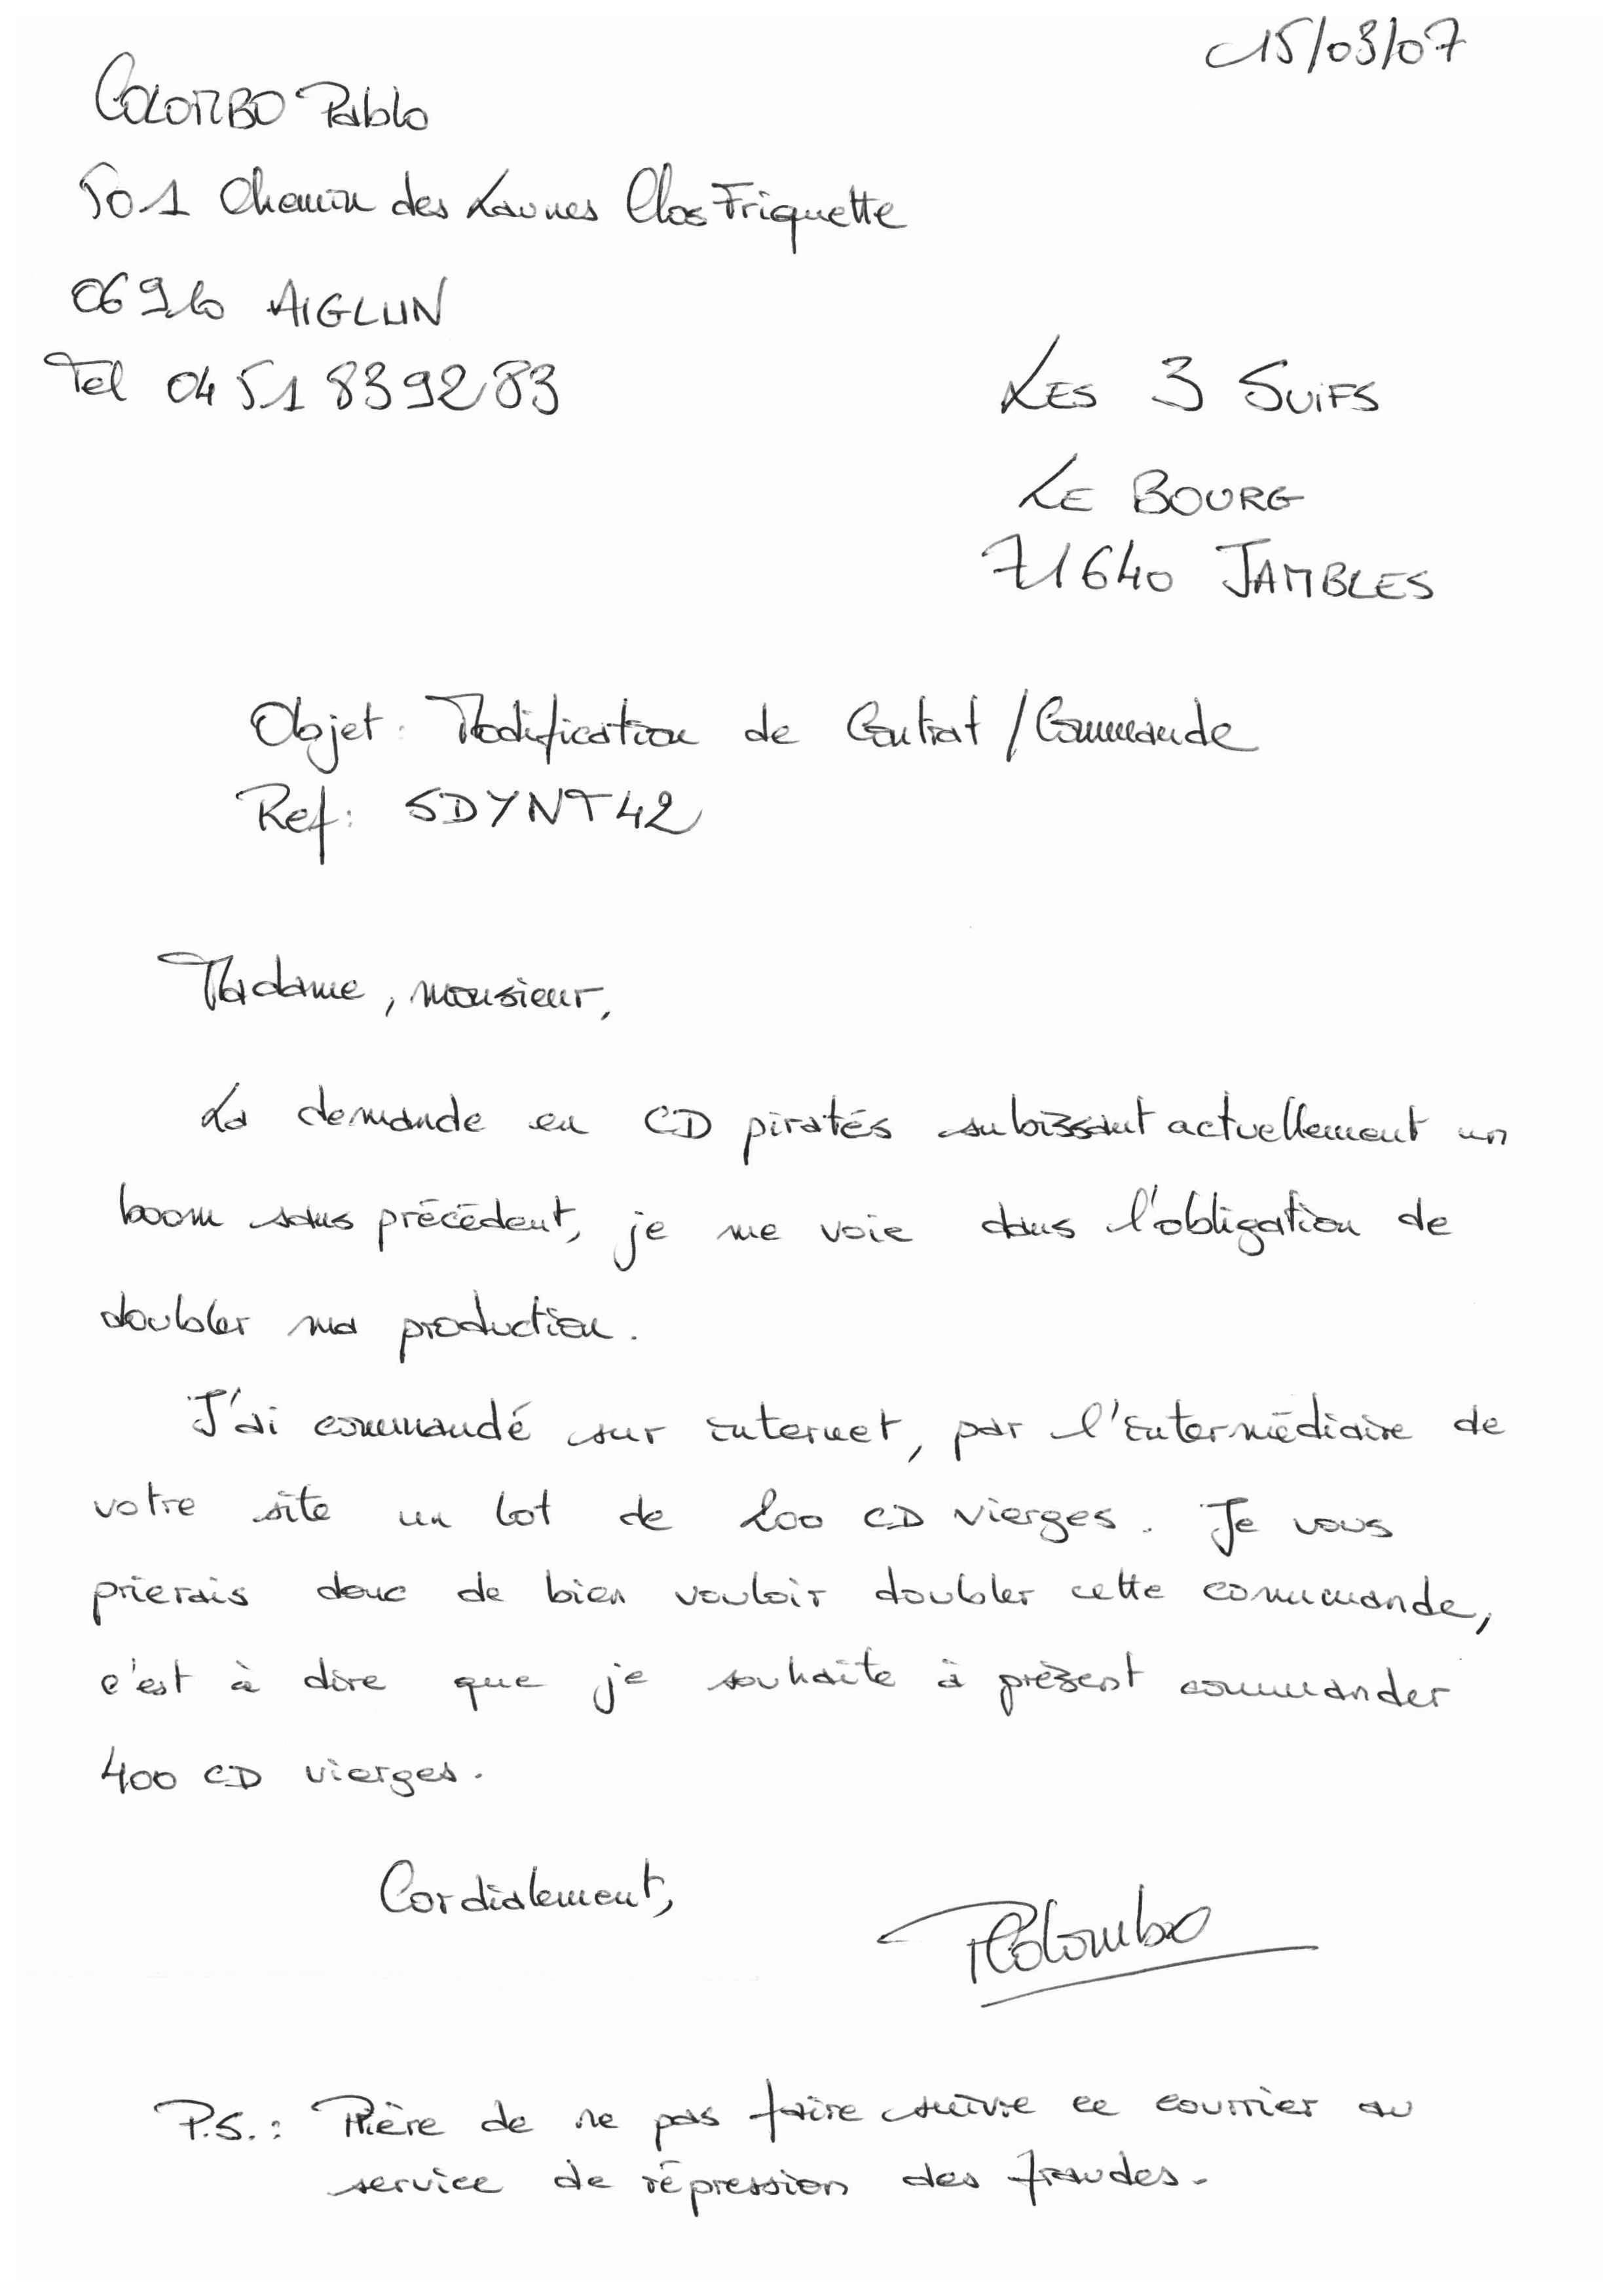 15/03/07
COLOMBO Pablo
501 Chemin des Launes Clos Friquette
06910 AIGLUN
Tel 0451839283
LES 3 SUIFS
LE BOURG
71640 JAMBLES
Objet : Modification de Contrat / Commande
Ref : SDYNT42
Madame, monsieur,
La demande en CD piratés subissant actuellement un
boom sans précédent, je me voie dans l'obligation de
doubler ma production.
J'ai commandé sur internet, par l'intermédiaire de
votre site un lot de 200 CD vierges. Je vous
prierais donc de bien vouloir doubler cette commande,
c'est à dire que je souhaite à présent commander
400 CD vierges.
Cordialement,
PColombo
P.S. : Prière de ne pas faire suivre ce courrier au
service de répression des fraudes.